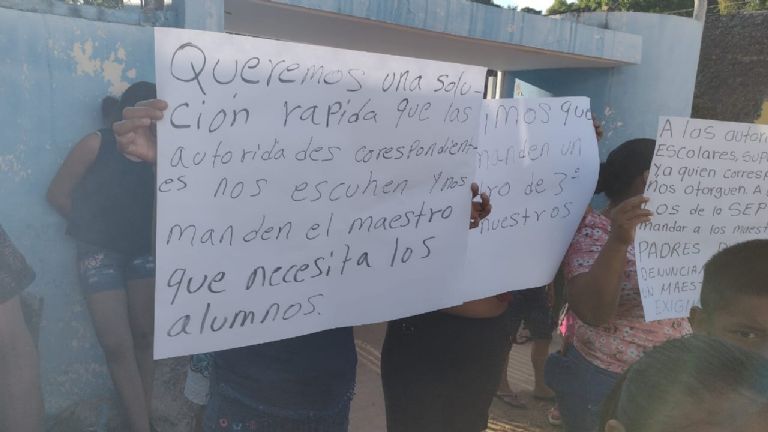 Queremos una solu-
ción rapida que las
autorida des corespondient-
es nos escuhen y nos
manden el maestro
que necesita los
alumnos.
imos que
manden un
ro de 3°
nuestros
A las autori
ESCOLARES, SUP
Ya quien corres
nos otorguen. A
OS de la SEP
mandar a los maest
PADRES D
DENUNCIA
UN MAEST
EXIGI